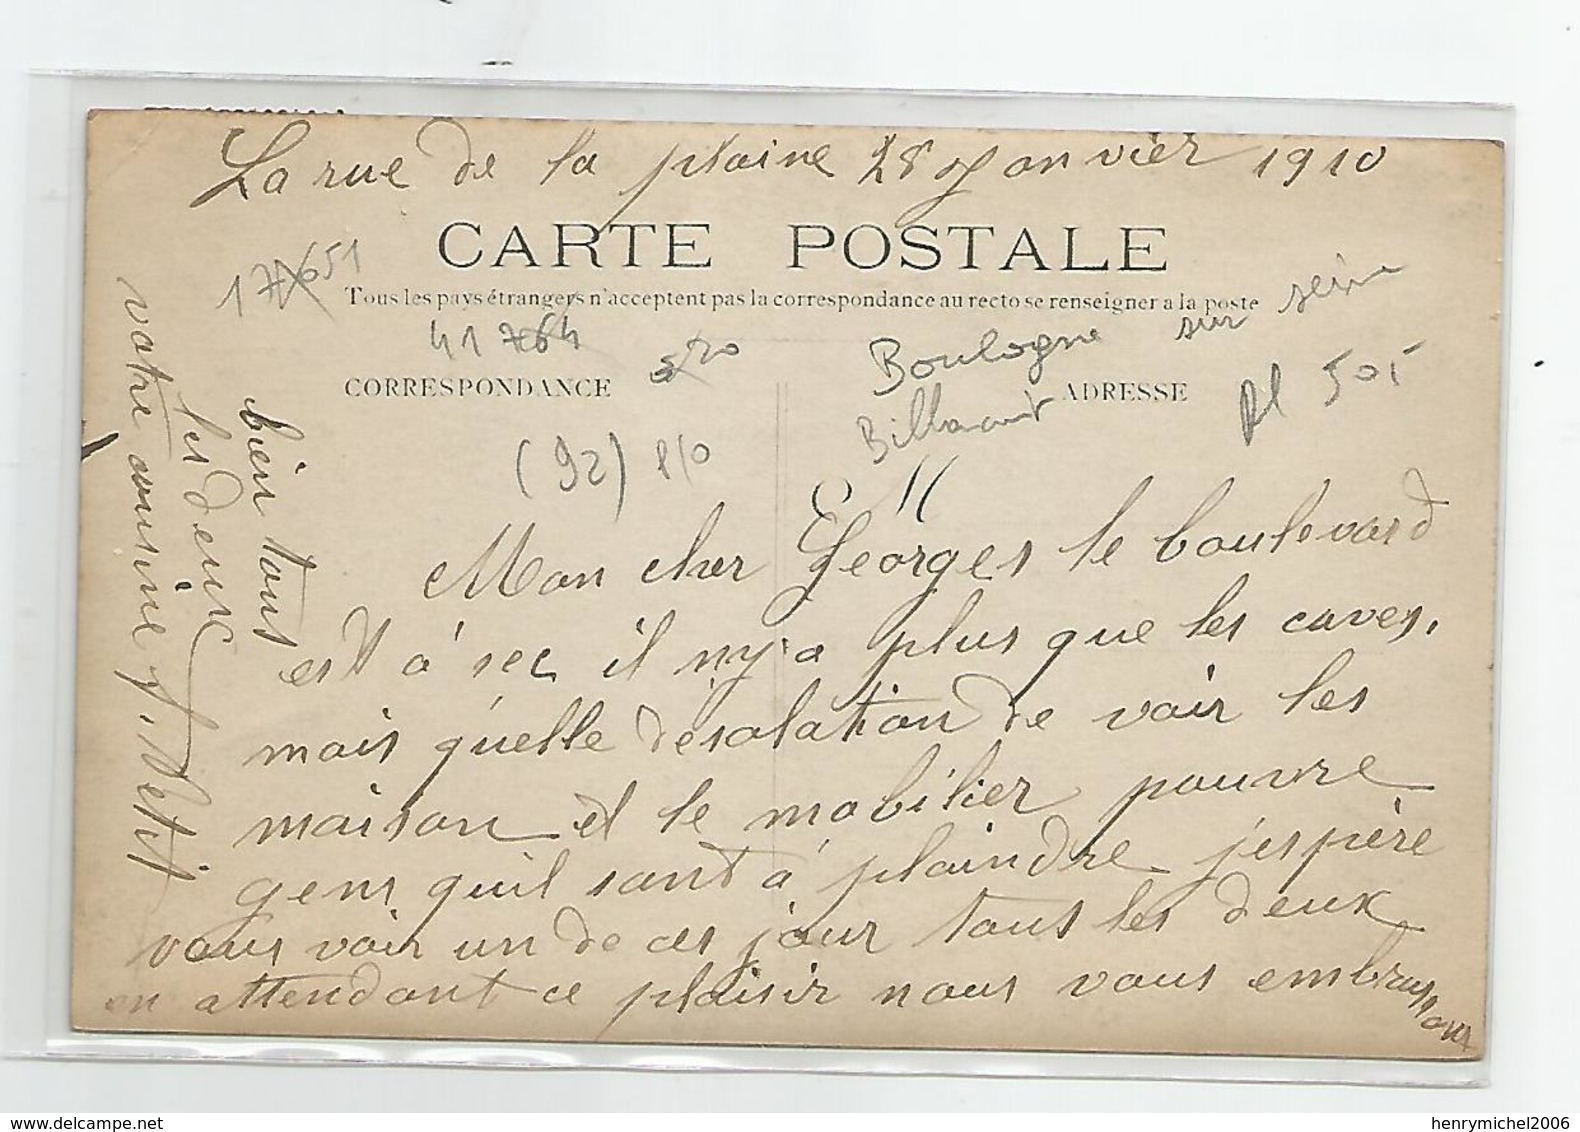 La rue de la plaine 28 Janvier 1910
CARTE POSTALE
Tous les pays étrangers n'acceptent pas la correspondance au recto se renseigner a la poste
17651
41764
520
CORRESPONDANCE
ADRESSE
Boulogne sur seine
Billancourt
Pl 505
(92)
P/0
Mon cher Georges le boulevard
est à sec il n'y a plus que les caves.
mais qu'elle désolation de voir les
maison et le mobilier pauvre
gens qu'il sont à plaindre j'espère
vous voir un de ces jour tous les deux
en attendant ce plaisir nous vous embrassons
bien tous
les deux
votre cousine J. Petit
henrymichel2006